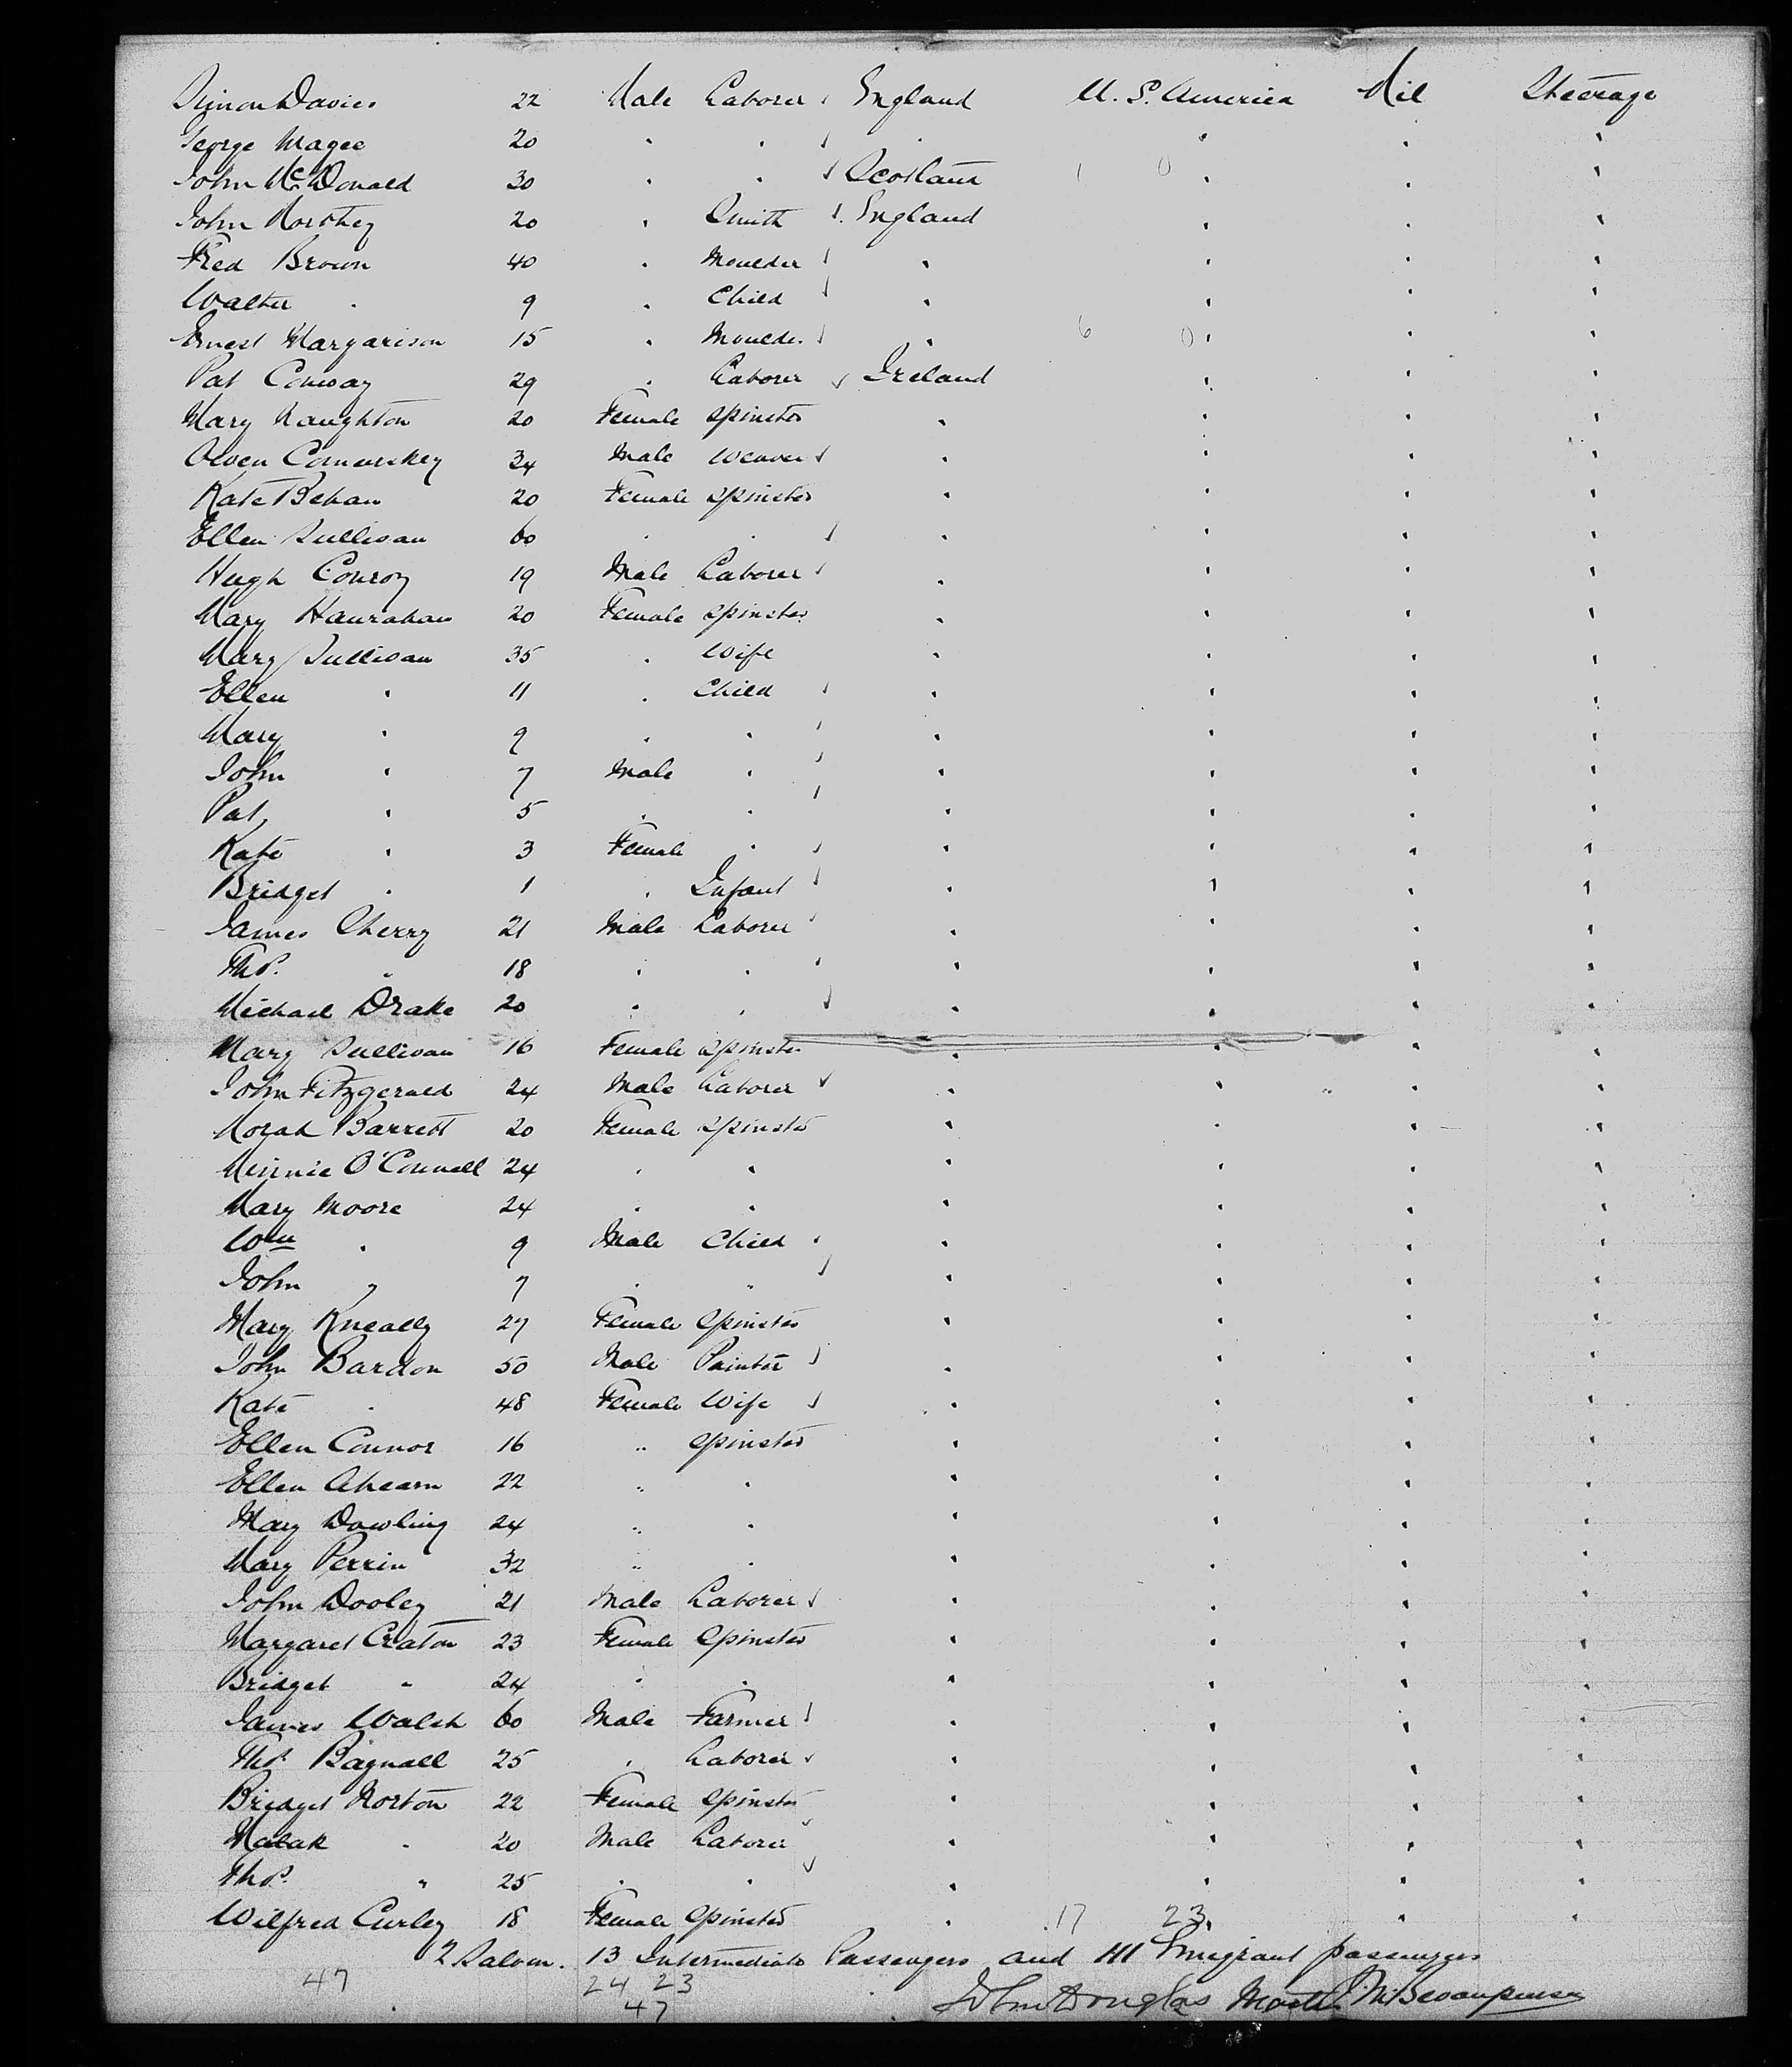 Simon Davies 22 Male Laborer England U.S. America Nil Steerage
George Magee 20 " " " " " "
John McDonald 30 " " Scotland 1 0 " " "
John Northey 20 " Smith England " " "
Fred Brown 40 " Moulder " " " "
Walter " 9 " Child " " " "
Ernest Margarison 15 " Moulder " 6 0 " " "
Pat Conway 29 " Laborer Ireland " " "
Mary Naughton 20 Female Spinster " " " "
Owen Comerskey 34 Male Weaver " " " "
Kate Behan 20 Female Spinster " " " "
Ellen Sullivan 60 " " " " " "
Hugh Conroy 19 Male Laborer " " " "
Mary Hanrahan 20 Female Spinster " " " "
Mary Sullivan 35 " Wife " " " "
Ellen " 11 " Child " " " "
Mary " 9 " " " " " "
John " 7 Male " " " " "
Pat " 5 " " " " " "
Kate " 3 Female " " " " "
Bridget " 1 " Infant " " " "
James Cherry 21 Male Laborer " " " "
Thos. " 18 " " " " " "
Michael Drake 20 " " " " " "
Mary Sullivan 16 Female Spinster " " " "
John Fitzgerald 24 Male Laborer " " " "
Norah Barrett 20 Female Spinster " " " "
Minnie O'Connell 24 " " " " " "
Mary Moore 24 " " " " " "
Wm " 9 Male Child " " " "
John " 7 " " " " " "
Mary Kneally 27 Female Spinster " " " "
John Bardon 50 Male Painter " " " "
Kate " 48 Female Wife " " " "
Ellen Connor 16 " Spinster " " " "
Ellen Ahearn 22 " " " " " "
Mary Dowling 24 " " " " " "
Mary Perrin 32 " " " " " "
John Dooley 21 Male Laborer " " " "
Margaret Craton 23 Female Spinster " " " "
Bridget " 24 " " " " " "
James Walsh 60 Male Farmer " " " "
Thos. Bagnall 25 " Laborer " " " "
Bridget Norton 22 Female Spinster " " " "
Malak " 20 Male Laborer " " " "
Thos. " 25 " " " " " "
Wilfred Curley 18 Female Spinster " 17 23 " " "
2 Saloon. 13 Intermediate Passengers and 141 Emigrant passengers
47 24 23
47 John Douglas Master